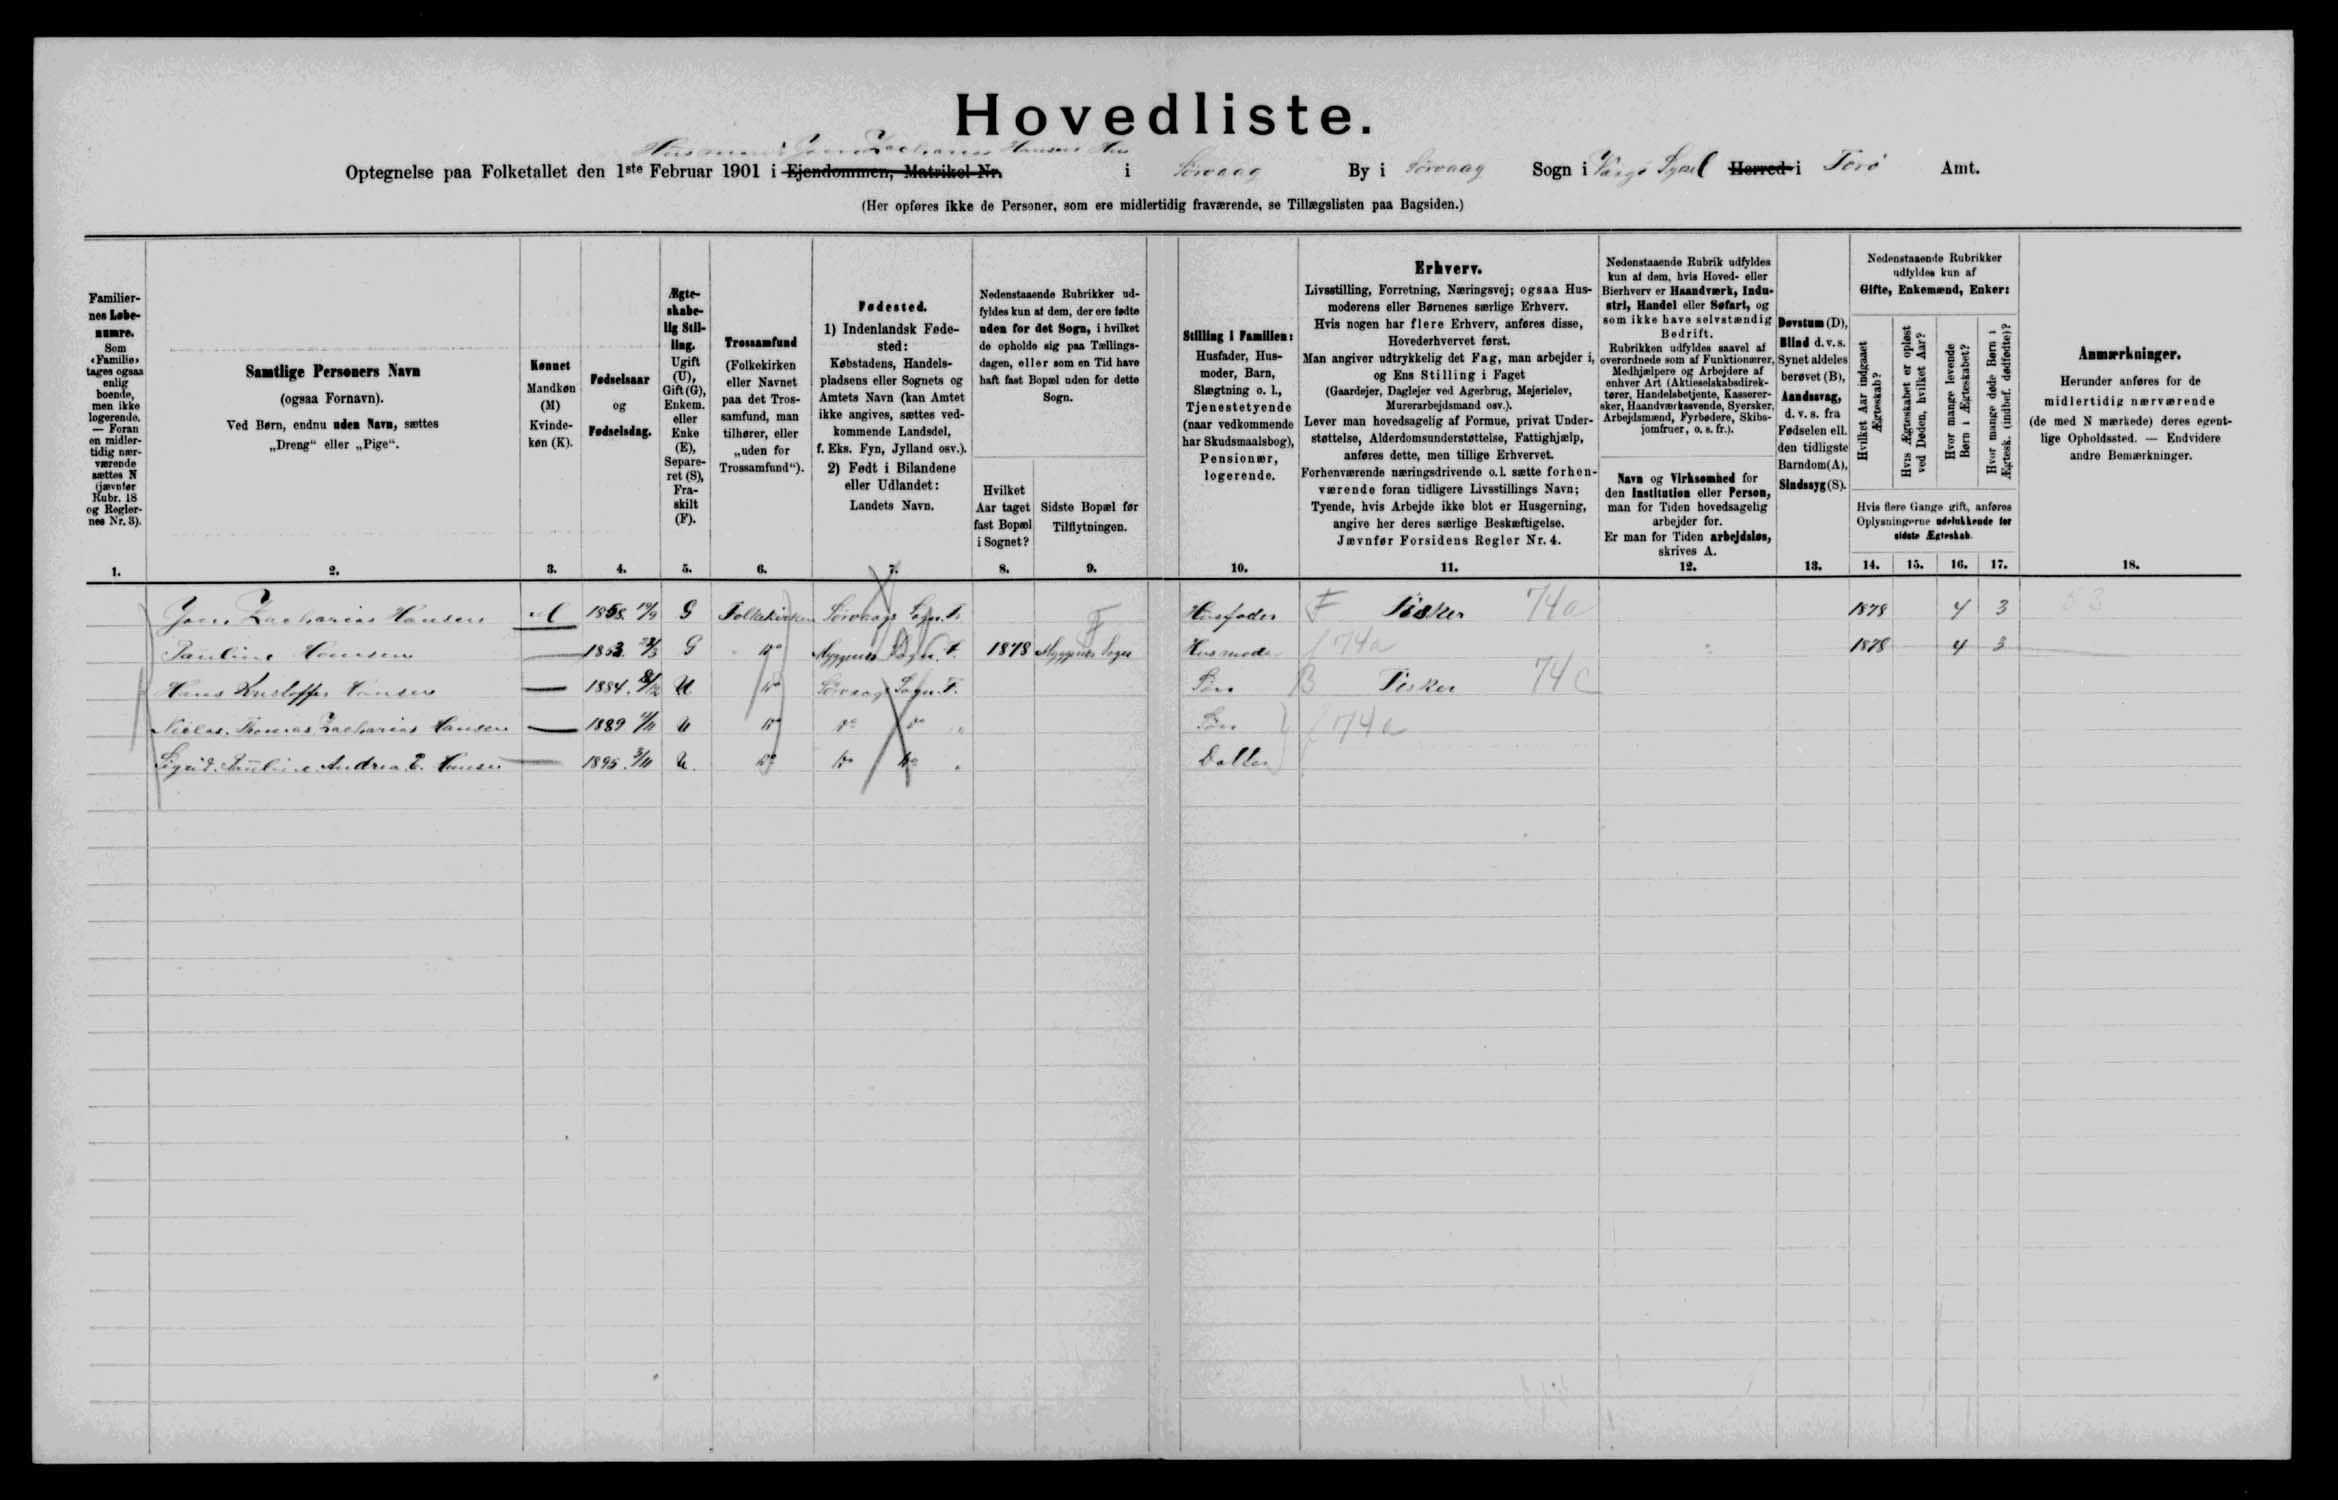 Hovedliste.
Zacharias Hansens Hus
Optegnelse paa Folketallet den 1ste Februar 1901 i Ejendommen, Matrikel Nr. i Sørvaag By i Sørvaag Sogn i Vaagø Syssel Herred i Færø Amt.
(Her opføres ikke de Personer, som ere midlertidig fraværende, se Tillægslisten paa Bagsiden.)
Familiernes Løbenumre.
Som «Familie» tages ogsaa enlig boende, men ikke logerende. — Foran en midlertidig nærværende sættes N (jævnfør Rubr. 18 og Reglernes Nr. 3).
Samtlige Personers Navn
(ogsaa Fornavn).
Ved Børn, endnu uden Navn, sættes
„Dreng“ eller „Pige“.
Kønnet
Mandkøn (M)
Kvindekøn (K).
Fødselsaar
og
Fødselsdag.
Ægteskabelig Stilling.
Ugift (U), Gift (G), Enkem. eller Enke (E), Separeret (S), Fraskilt (F).
Trossamfund
(Folkekirken eller Navnet paa det Trossamfund, man tilhører, eller „uden for Trossamfund“).
Fødested.
1) Indenlandsk Fødested:
Købstadens, Handelspladsens eller Sognets og Amtets Navn (kan Amtet ikke angives, sættes vedkommende Landsdel, f. Eks. Fyn, Jylland osv.).
2) Født i Bilandene eller Udlandet:
Landets Navn.
Nedenstaaende Rubrikker udfyldes kun af dem, der ere fødte uden for det Sogn, i hvilket de opholde sig paa Tællingsdagen, eller som en Tid have haft fast Bopæl uden for dette Sogn.
Hvilket Aar taget fast Bopæl i Sognet?
Sidste Bopæl før Tilflytningen.
Stilling i Familien:
Husfader, Husmoder, Barn, Slægtning o. l., Tjenestetyende (naar vedkommende har Skudsmaalsbog), Pensionær, logerende.
Erhverv.
Livsstilling, Forretning, Næringsvej; ogsaa Husmoderens eller Børnenes særlige Erhverv.
Hvis nogen har flere Erhverv, anføres disse, Hovederhvervet først.
Man angiver udtrykkelig det Fag, man arbejder i, og Ens Stilling i Faget
(Gaardejer, Daglejer ved Agerbrug, Mejerielev, Murerarbejdsmand osv.).
Lever man hovedsagelig af Formue, privat Understøttelse, Alderdomsunderstøttelse, Fattighjælp, anføres dette, men tillige Erhvervet.
Forhenværende næringsdrivende o. l. sætte forhenværende foran tidligere Livsstillings Navn;
Tyende, hvis Arbejde ikke blot er Husgerning, angive her deres særlige Beskæftigelse.
Jævnfør Forsidens Regler Nr. 4.
Nedenstaaende Rubrik udfyldes kun af dem, hvis Hoved- eller Bierhverv er Haandværk, Industri, Handel eller Søfart, og som ikke have selvstændig Bedrift.
Rubrikken udfyldes saavel af overordnede som af Funktionærer, Medhjælpere og Arbejdere af enhver Art (Aktieselskabsdirektører, Handelsbetjente, Kasserersker, Haandværkssvende, Syersker, Arbejdsmænd, Fyrbødere, Skibsjomfruer, o. s. fr.).
Navn og Virksomhed for den Institution eller Person, man for Tiden hovedsagelig arbejder for.
Er man for Tiden arbejdsløs, skrives A.
Døvstum (D), Blind d. v. s. Synet aldeles berøvet (B), Aandssvag, d. v. s. fra Fødselen ell. den tidligste Barndom (A), Sindssyg (S).
Nedenstaaende Rubrikker udfyldes kun af
Gifte, Enkemænd, Enker:
Hvilket Aar indgaaet Ægteskab?
Hvis Ægteskabet er opløst ved Døden, hvilket Aar?
Hvor mange levende Børn i Ægteskabet?
Hvor mange døde Børn i Ægtesk. (indbef. dødfødte)?
Hvis flere Gange gift, anføres Oplysningerne udelukkende for sidste Ægteskab.
Anmærkninger.
Herunder anføres for de midlertidig nærværende (de med N mærkede) deres egentlige Opholdssted. — Endvidere andre Bemærkninger.
1. 2. 3. 4. 5. 6. 7. 8. 9. 10. 11. 12. 13. 14. 15. 16. 17. 18.
Zacharias Hansen M 1858 G Folkekirken Sørvaags Sogn. F. Husfader F Fisker 74a 1878 4 3
Pauline Hansen 1853 G do Myggenæs Sogn. F. 1878 Myggenæs Sogn Husmoder 74a 1878 4 3
Hans Kristoffer Hansen 1884 U do Sørvaags Sogn. F. Søn B Fisker 74c
Thomas Zacharias Hansen 1889 U do do do Søn 74a
Sigrid Pauline Andrea E. Hansen 1895 U. do do do Datter